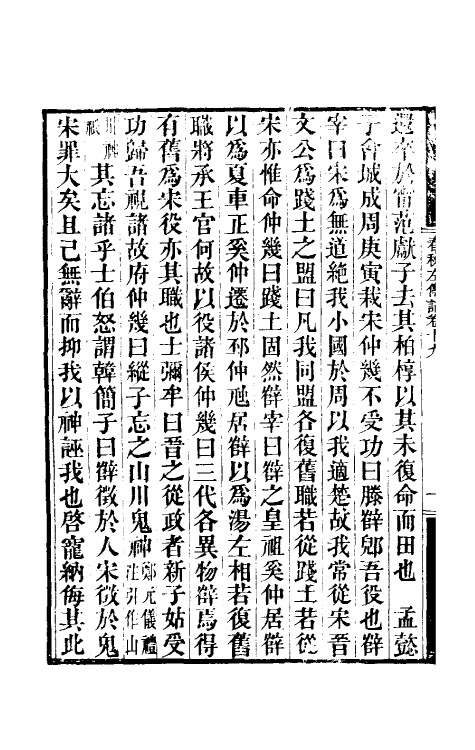 還卒於甯范獻子去其柏椁以其未復命而田也　孟懿
子會城成周庚寅栽宋仲幾不受功曰滕辥郳吾役也辥
宰曰宋爲無道絶我小國於周以我適楚故我常從宋晋
文公爲踐土之盟曰凡我同盟各復舊職若從踐土若從
宋亦惟命仲幾曰踐土固然辥宰曰辥之皇祖奚仲居辥
以爲夏車正奚仲遷於邳仲虺居辥以爲湯左相若復舊
職將承王官何故以役諸侯仲幾曰三代各異物辥焉得
有舊爲宋役亦其職也士彌牟曰晋之從政者新子姑受
功歸吾視諸故府仲幾曰縱子忘之山川鬼神鄭元儀禮注引作山
川神祇其忘諸乎士伯怒謂韓簡子曰辥徵於人宋徵於鬼
宋罪大矣且己無辭而抑我以神誣我也啓寵納侮其此
春秋左傳詁卷十九
一